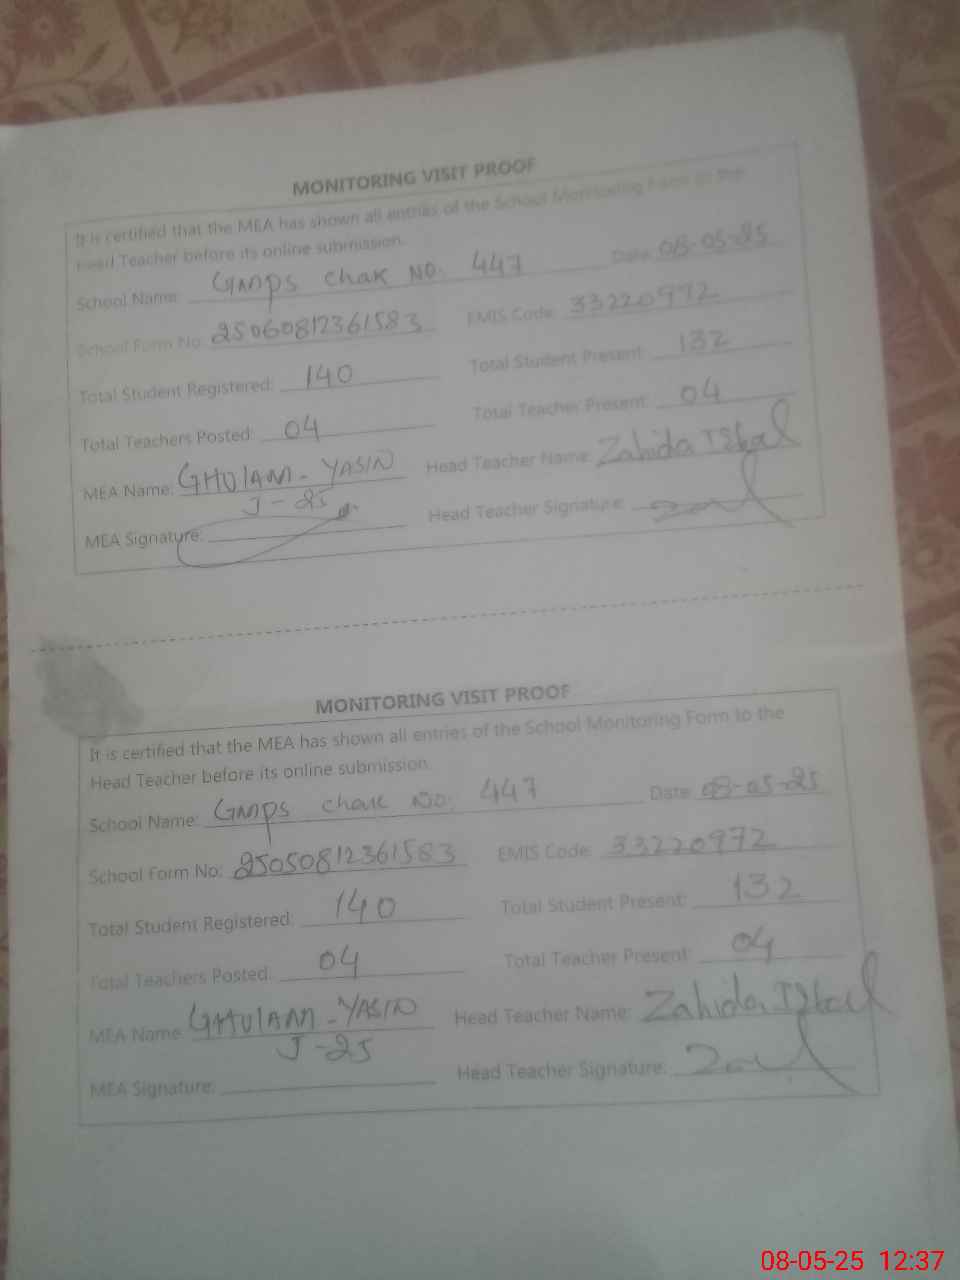 MONITORING VISIT PROOF
It is certified that the MEA has shown all entries of the School Monitoring Form to the
Head Teacher before its online submission.
School Name: GMPS Chak NO. 447 Date: 08-05-25
School Form No: 25060812361583 EMIS Code: 33220972
Total Student Registered: 140 Total Student Present: 132
Total Teachers Posted: 04 Total Teacher Present: 04
MEA Name: GHULAM - YASIN Head Teacher Name: Zahida Iqbal
J-25
MEA Signature: Head Teacher Signature:
MONITORING VISIT PROOF
It is certified that the MEA has shown all entries of the School Monitoring Form to the
Head Teacher before its online submission.
School Name: GMPS Chak No. 447 Date: 08-05-25
School Form No: 25050812361583 EMIS Code: 33220972
Total Student Registered: 140 Total Student Present: 132
Total Teachers Posted: 04 Total Teacher Present: 04
MEA Name: GHULAM - YASIN Head Teacher Name: Zahida Iqbal
J-25
MEA Signature: Head Teacher Signature:
08-05-25 12:37